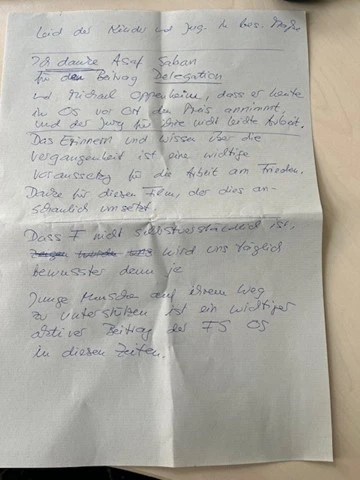 Leid der Kinder und Jug. in bes. Maße
Ich danke Asaf Saban
für den Beitrag Delegation
und Michael Oppenheim, dass er heute
in OS vor Ort den Preis annimmt,
und der Jury für ihre nicht leichte Arbeit.
Das Erinnern und Wissen über die
Vergangenheit ist eine wichtige
Voraussetzg für die Arbeit am Frieden.
Danke für diesen Film, der dies an-
schaulich umsetzt.
Dass F nicht selbstverständlich ist,
wird uns täglich
bewusster denn je
Junge Menschen auf ihrem Weg
zu unterstützen ist ein wichtiger
aktiver Beitrag der FS OS
in diesen Zeiten.